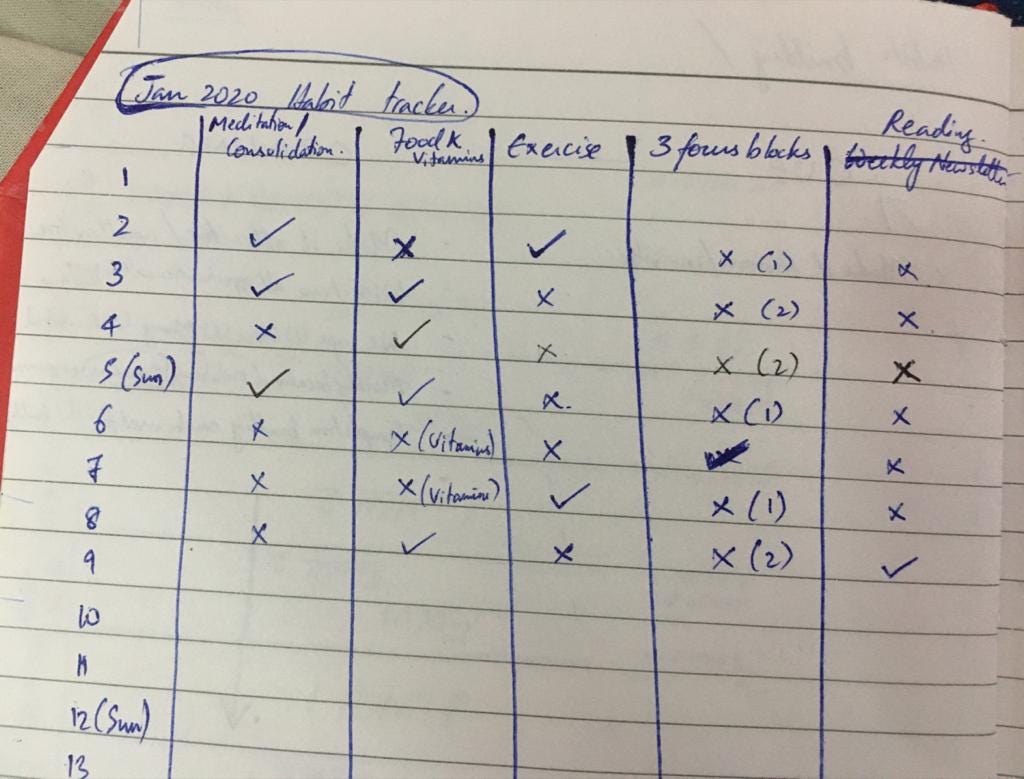 Jan 2020 Habit tracker.
Meditation/ Consolidation. Food & Vitamins Exercise 3 focus blocks Reading.
Weekly Newsletter
1
2 ✓ x ✓ x (1) x
3 ✓ ✓ x x (2) x
4 x ✓ x x (2) x
5 (Sun) ✓ ✓ x. x (1) x
6 x x (Vitamins) x x
7 x x (Vitamins) ✓ x (1) x
8 x ✓ x x (2) ✓
9
10
11
12 (Sun)
13